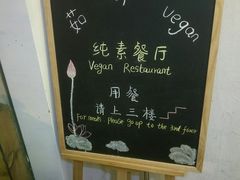 茹
vegan
纯素餐厅
Vegan Restaurant
用餐
请上三楼
for meals Please go up to the 3rd floor